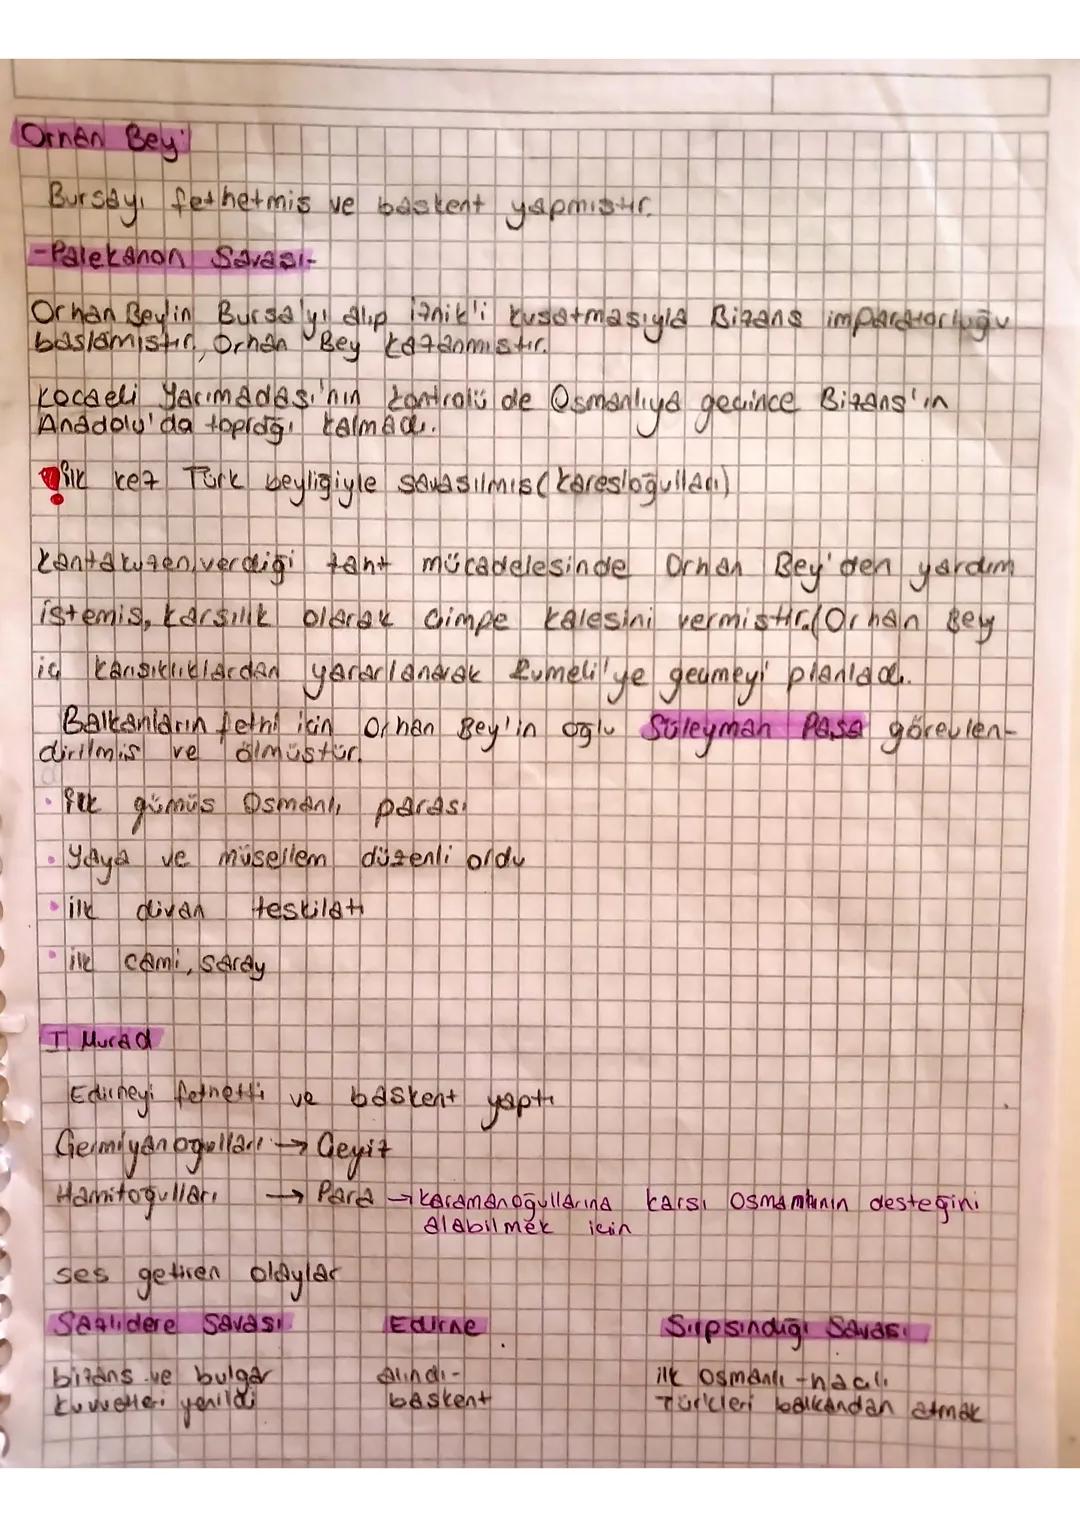 Orhan Bey:
Bursayı fethetmiş ve başkent yapmıştır.
-Palekanon Savaşı-
Orhan Bey'in Bursa'yı alıp İznik'i kuşatmasıyla Bizans imparatorluğu
başlamıştır, Orhan Bey kazanmıştır.
Kocaeli Yarımadası'nın kontrolü de Osmanlıya geçince Bizans'ın
Anadolu'da toprağı kalmadı.
İlk kez Türk beyliğiyle savaşılmış (Karesioğulları)
Kantakuzen, verdiği taht mücadelesinde Orhan Bey'den yardım
istemiş, karşılık olarak Çimpe kalesini vermiştir. (Orhan Bey
iç karışıklıklardan yararlanarak Rumeli'ye geçmeyi planladı.
Balkanların fethi için Orhan Bey'in oğlu Süleyman Paşa görevlen-
dirilmiş ve ölmüştür.
• İlk gümüş Osmanlı parası
• Yaya ve müsellem düzenli ordu
• ilk divan teşkilatı
• ilk cami, saray
I. Murad
Edirneyi fethetti ve başkent yaptı
Germiyanoğulları → Çeyiz
Hamitoğulları → Para → Karamanoğullarına karşı Osmanlının desteğini
alabilmek için
ses getiren olaylar
Sazlıdere Savaşı Edirne Sırpsındığı Savaşı
bizans ve bulgar alındı- ilk Osmanlı-haçlı
kuvvetleri yenildi başkent Türkleri balkandan atmak